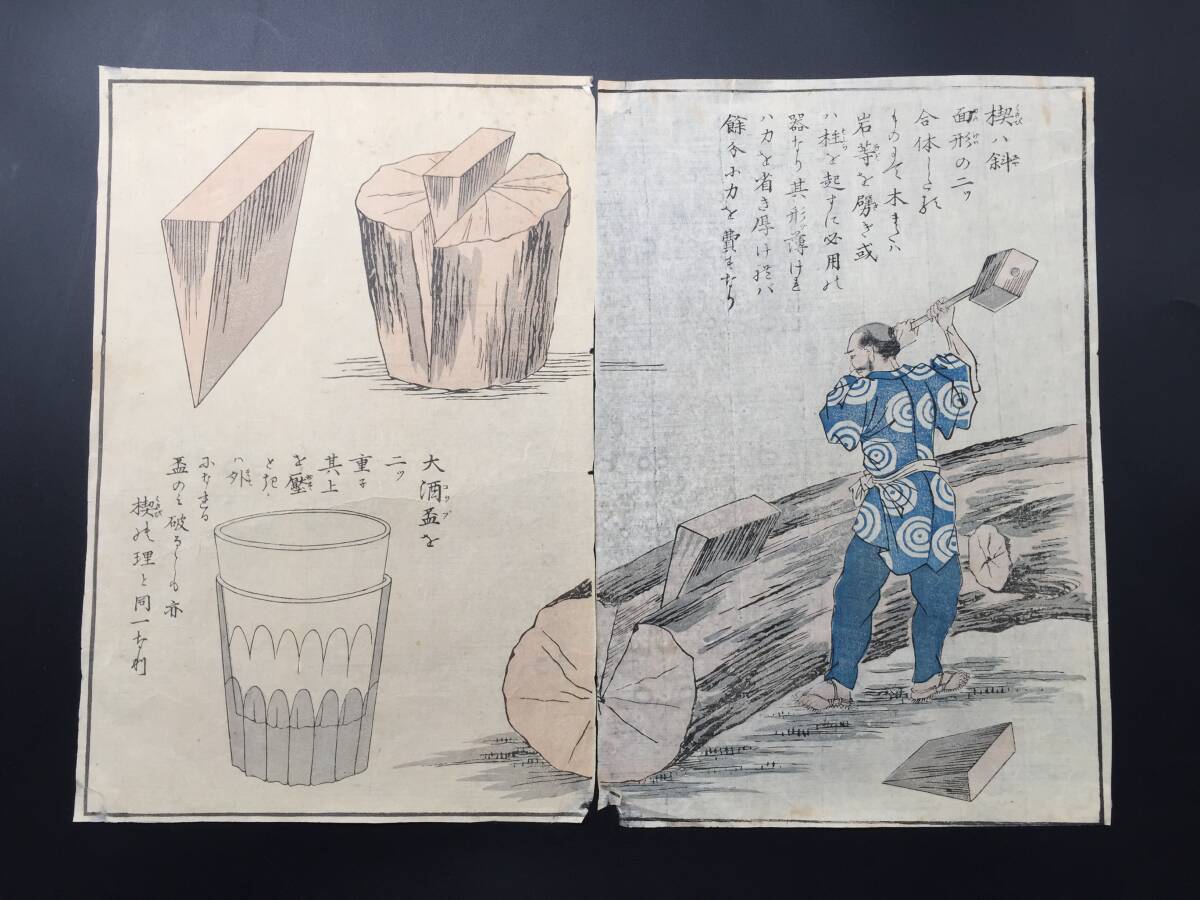 楔ハ斜
面形の二ツ
合体したる
ものにて木またハ
岩等を劈き或
ハ柱を起すに必用の
器なり其形薄けれ
ハ力を省き厚けれバ
餘分に力を費すなり
大酒盃を
二ツ
重子
其上
を壓
ハ外
盃のミ破るゝも亦
楔の理と同一なり